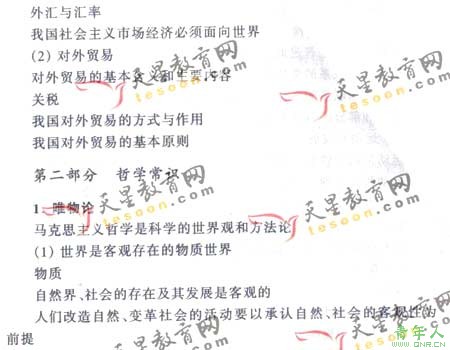 外汇与汇率
我国社会主义市场经济必须面向世界
(2) 对外贸易
对外贸易的基本含义和主要内容
关税
我国对外贸易的方式与作用
我国对外贸易的基本原则
第二部分 哲学常识
1. 唯物论
马克思主义哲学是科学的世界观和方法论
(1) 世界是客观存在的物质世界
物质
自然界、社会的存在及其发展是客观的
人们改造自然、变革社会的活动要以承认自然、社会的客观性为
前提
天星教育网
tesoon.com
天星教育网
tesoon.com
天星教育网
tesoon.com
天星教育网
tesoon.com
天星教育网
tesoon.com
天星教育网
tesoon.com
青年人
www.QNR.cn